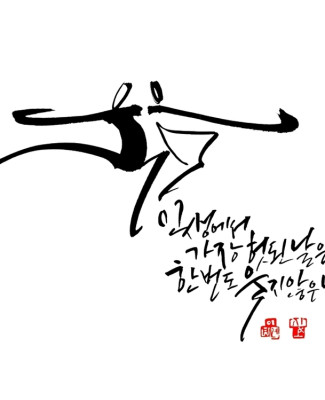 인생에서
가장 헛된 날은
한 번도 웃지 않은